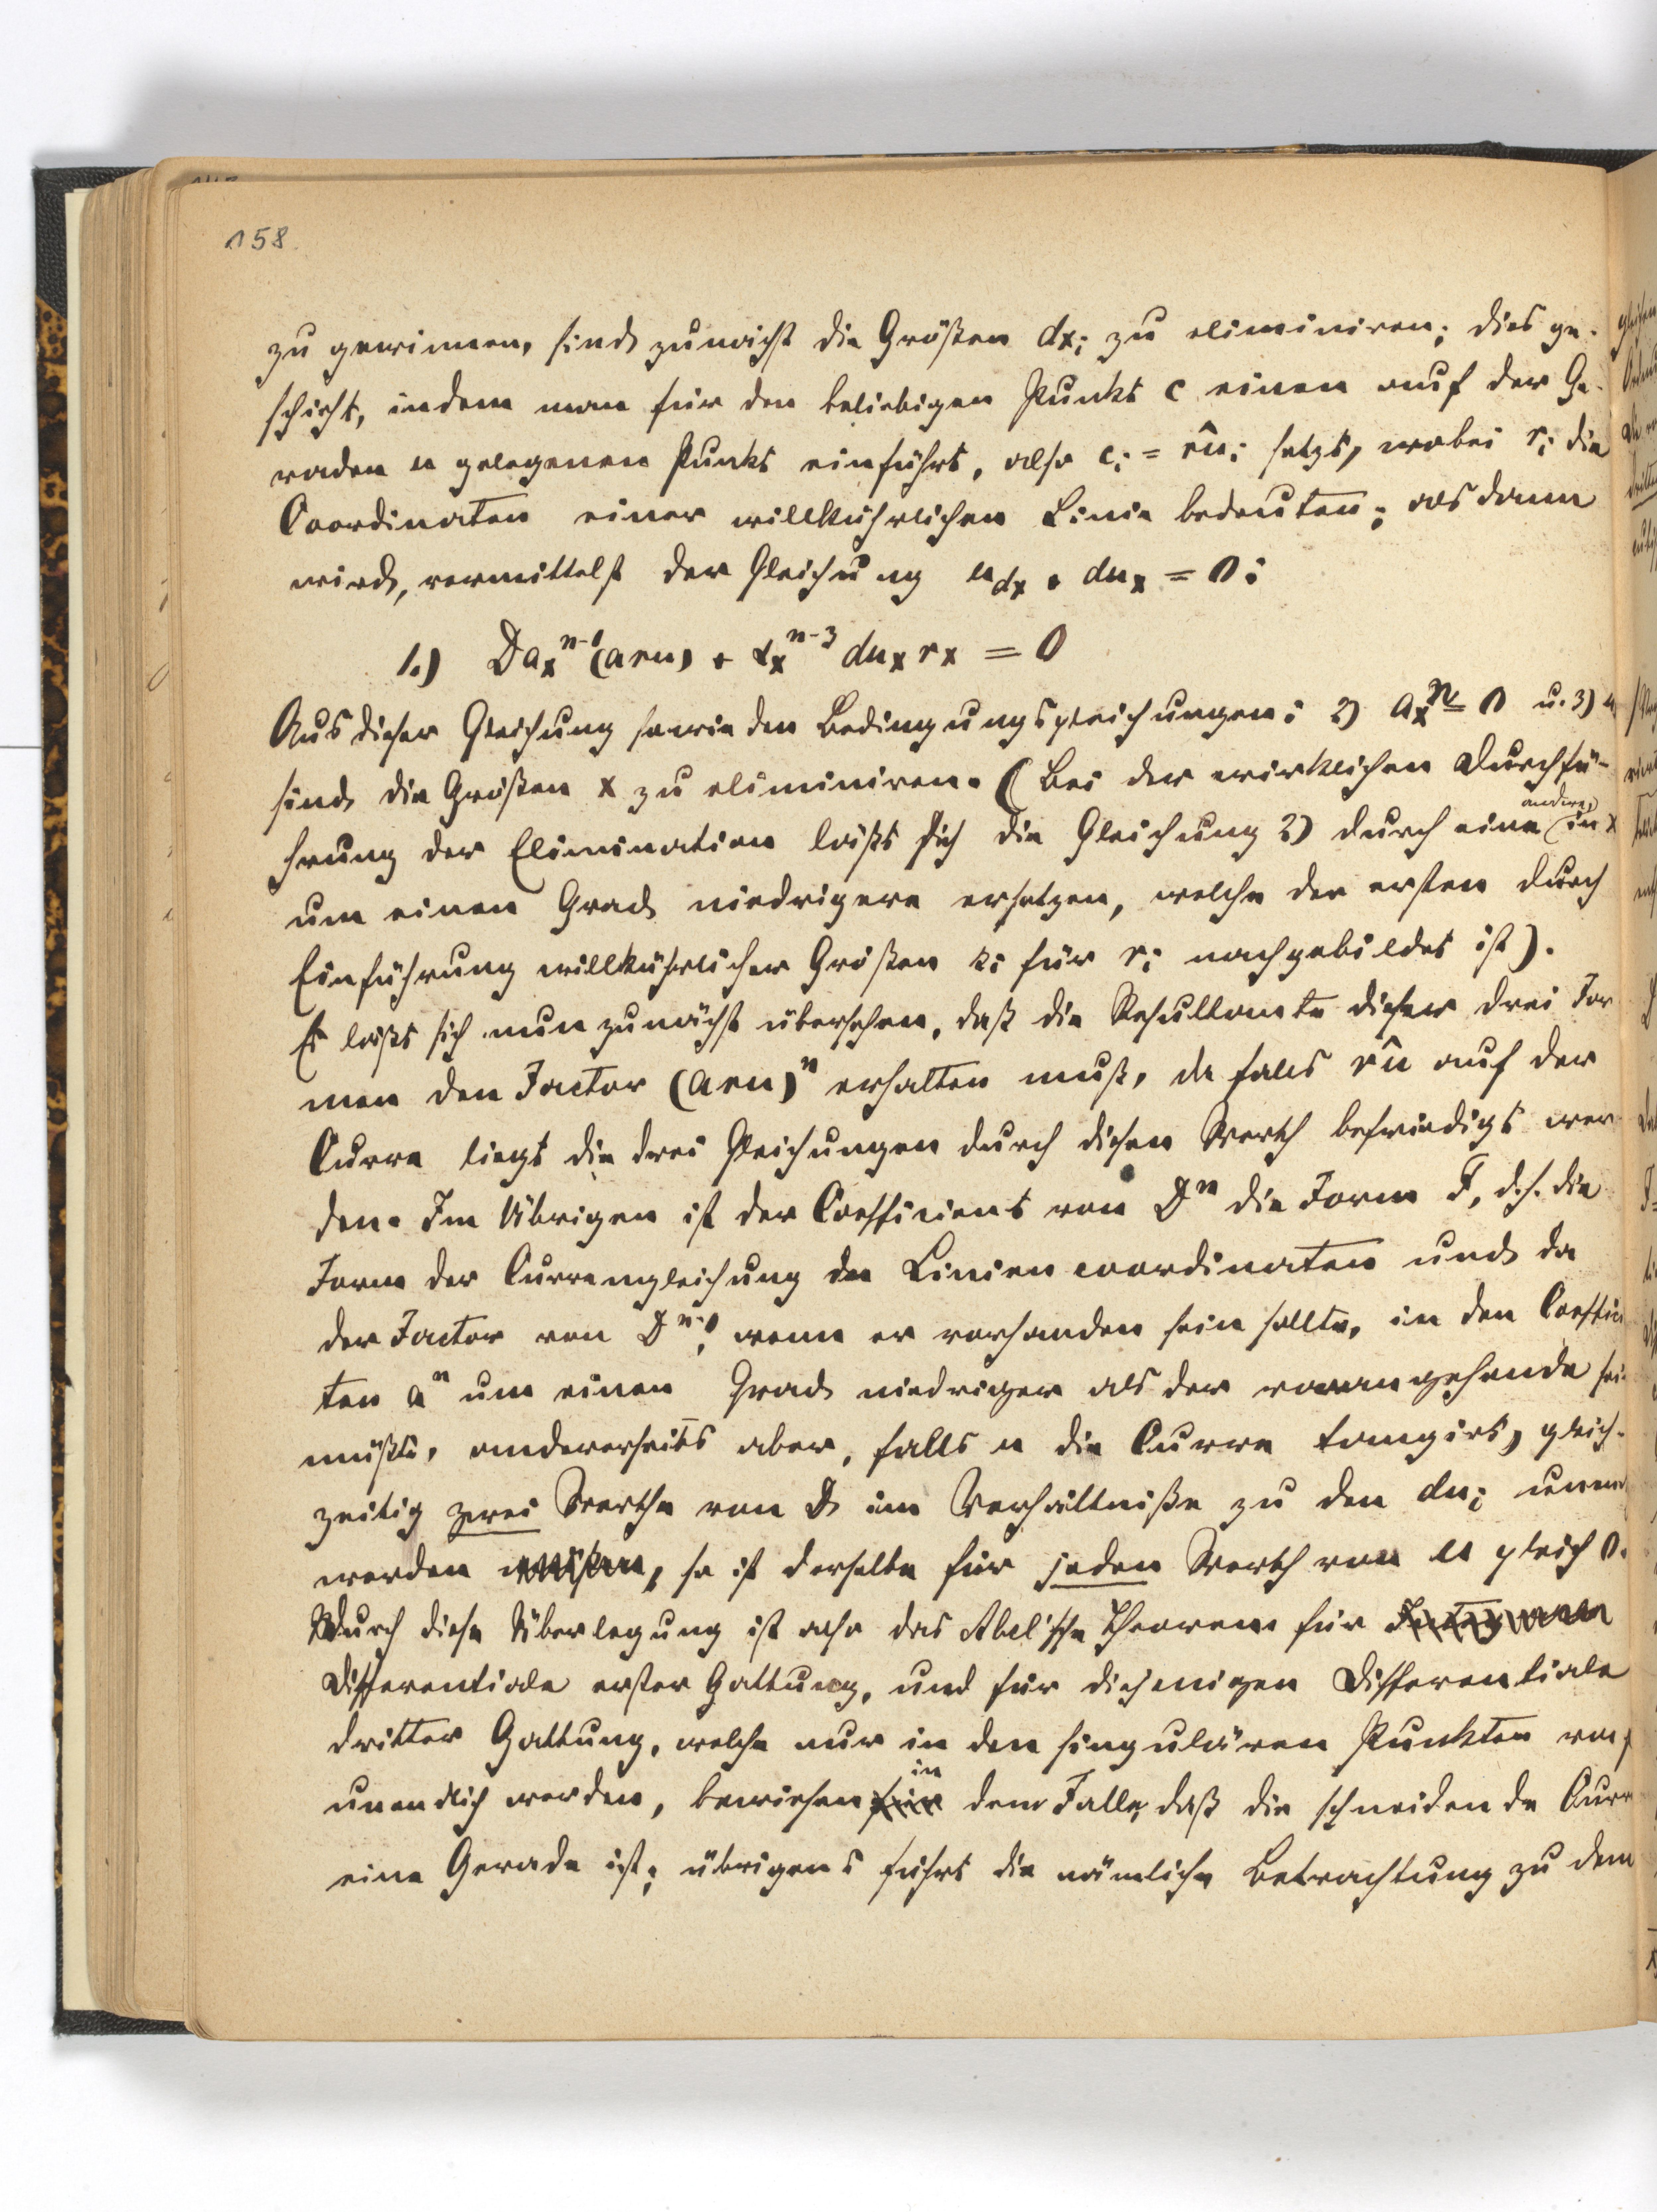 158.
zu gewinnen, sind zunächst die Größen dxᵢ zu eliminiren; dies ge-
schieht, indem man für den beliebigen Punkt c einen auf der Ge-
raden u gelegenen Punkt einführt, also cᵢ = r͡uᵢ setzt, wobei rᵢ die
Coordinaten einer willkührlichen Linie bedeuten; alsdann
wird, vermittelst der Gleichung u_dx + du_x = 0:
1.) Da_x^{n-1}(aru) + α_x^{n-3} du_x r_x = 0
Aus dieser Gleichung sowie den Bedingungsgleichungen: 2) a_x^n = 0 u. 3) u
sind die Größen x zu eliminiren. (Bei der wirklichen Durchfü-
hrung der Elimination läßt sich die Gleichung 2) durch eine andere, in x
um einen Grad niedrigere ersetzen, welche der ersten durch
Einführung willkührlicher Größen kᵢ für rᵢ nachgebildet ist).
Es läßt sich nun zunächst übersehen, daß die Resultante dieser drei For
men den Factor (aru)ⁿ erhalten muß, da falls r͡u auf der
Curve liegt die drei Gleichungen durch diesen Werth befriedigt wer
den. Im Übrigen ist der Coefficient von Dⁿ die Form F, d.h. die
Form der Curvengleichung in Liniencoordinaten und da
der Factor von D^{n-1}, wenn er vorhanden sein sollte, in den Coeffici
ten aⁿ um einen Grad niedriger als der vorangehende sei
müßte, andererseits aber, falls u die Curve tangirt, gleich-
zeitig zwei Werthe von D im Verhältniße zu den duᵢ unend
werden müßten, so ist derselbe für jeden Werth von u gleich 0.
Durch diese Überlegung ist also das Abel'sche Theorem für
Differentiale erster Gattung, und für diejenigen Differentiale
dritter Gattung, welche nur in den singulären Punkten von f
unendlich werden, bewiesen in dem Falle, daß die schneidende Curv
eine Gerade ist; übrigens führt die nämliche Betrachtung zu dem